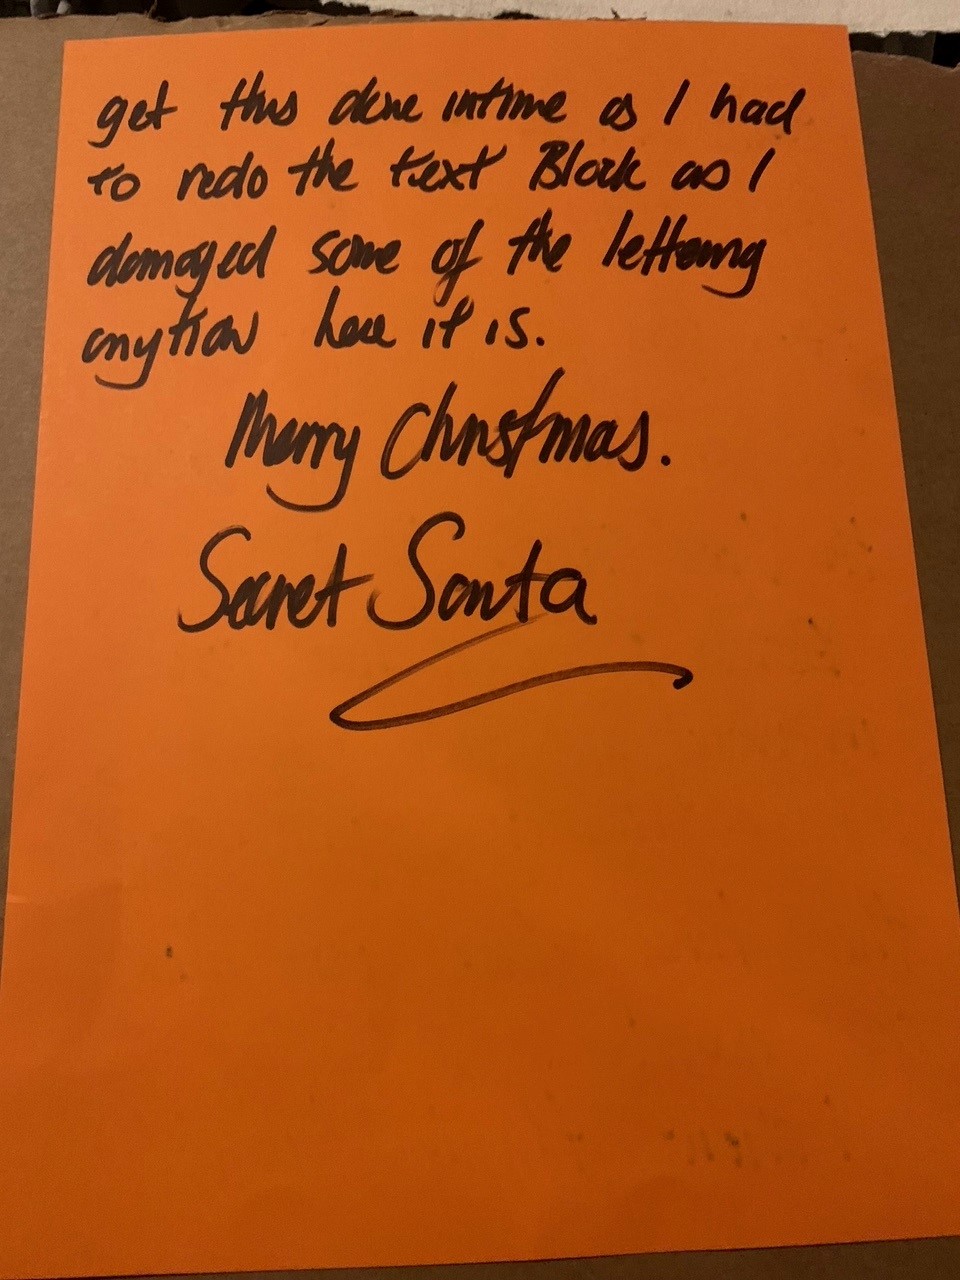 get this done intime as I had
to redo the text Block as I
damaged some of the lettering
anyhow here it is.
Merry Christmas.
Secret Santa